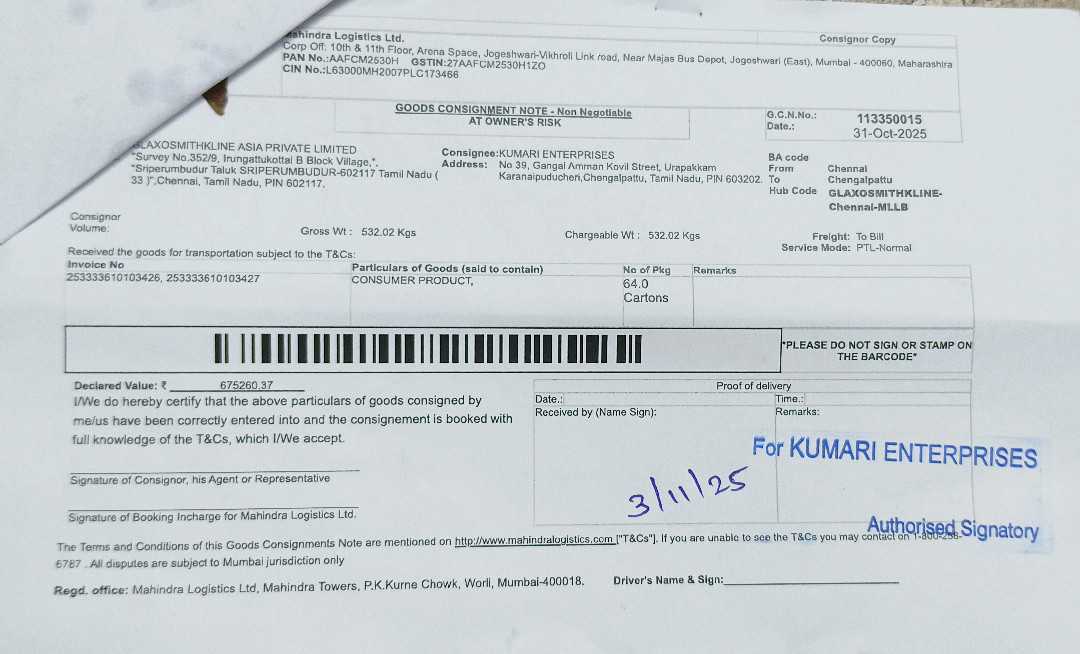 ahindra Logistics Ltd.
Consignor Copy
Corp Off: 10th & 11th Floor, Arena Space, Jogeshwari-Vikhroli Link road, Near Majas Bus Depot, Jogoshwari (East), Mumbai - 400060, Maharashtra
PAN No.:AAFCM2530H GSTIN:27AAFCM2530H1ZO
CIN No.:L63000MH2007PLC173466
GOODS CONSIGNMENT NOTE - Non Negotiable
AT OWNER'S RISK
G.C.N.No.: 113350015
Date.: 31-Oct-2025
GLAXOSMITHKLINE ASIA PRIVATE LIMITED
"Survey No.352/9, Irungattukottai B Block Village,",
"Sriperumbudur Taluk SRIPERUMBUDUR-602117 Tamil Nadu (
33 )",Chennai, Tamil Nadu, PIN 602117.
Consignee:KUMARI ENTERPRISES
Address: No 39, Gangal Amman Kovil Street, Urapakkam
Karanaipuducheri,Chengalpattu, Tamil Nadu, PIN 603202.
BA code
From Chennai
To Chengalpattu
Hub Code GLAXOSMITHKLINE-
Chennai-MLLB
Consignor
Volume:
Gross Wt : 532.02 Kgs
Chargeable Wt : 532.02 Kgs
Freight: To Bill
Service Mode: PTL-Normal
Received the goods for transportation subject to the T&Cs:
Invoice No Particulars of Goods (said to contain) No of Pkg Remarks
253333610103426, 253333610103427 CONSUMER PRODUCT, 64.0
Cartons
*PLEASE DO NOT SIGN OR STAMP ON
THE BARCODE*
Declared Value: ₹ 675260.37
I/We do hereby certify that the above particulars of goods consigned by
me/us have been correctly entered into and the consignement is booked with
full knowledge of the T&Cs, which I/We accept.
Signature of Consignor, his Agent or Representative
Signature of Booking Incharge for Mahindra Logistics Ltd.
Proof of delivery
Date.: Time.:
Received by (Name Sign): Remarks:
For KUMARI ENTERPRISES
3/11/25
Authorised Signatory
The Terms and Conditions of this Goods Consignments Note are mentioned on http://www.mahindralogistics.com ["T&Cs"]. If you are unable to see the T&Cs you may contact on 1-800-258-
6787 . All disputes are subject to Mumbai jurisdiction only
Regd. office: Mahindra Logistics Ltd, Mahindra Towers, P.K.Kurne Chowk, Worli, Mumbai-400018.
Driver's Name & Sign: